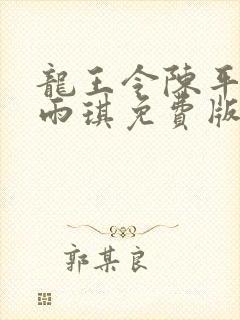 龍王令陳平
雨琪免費版
郭某良